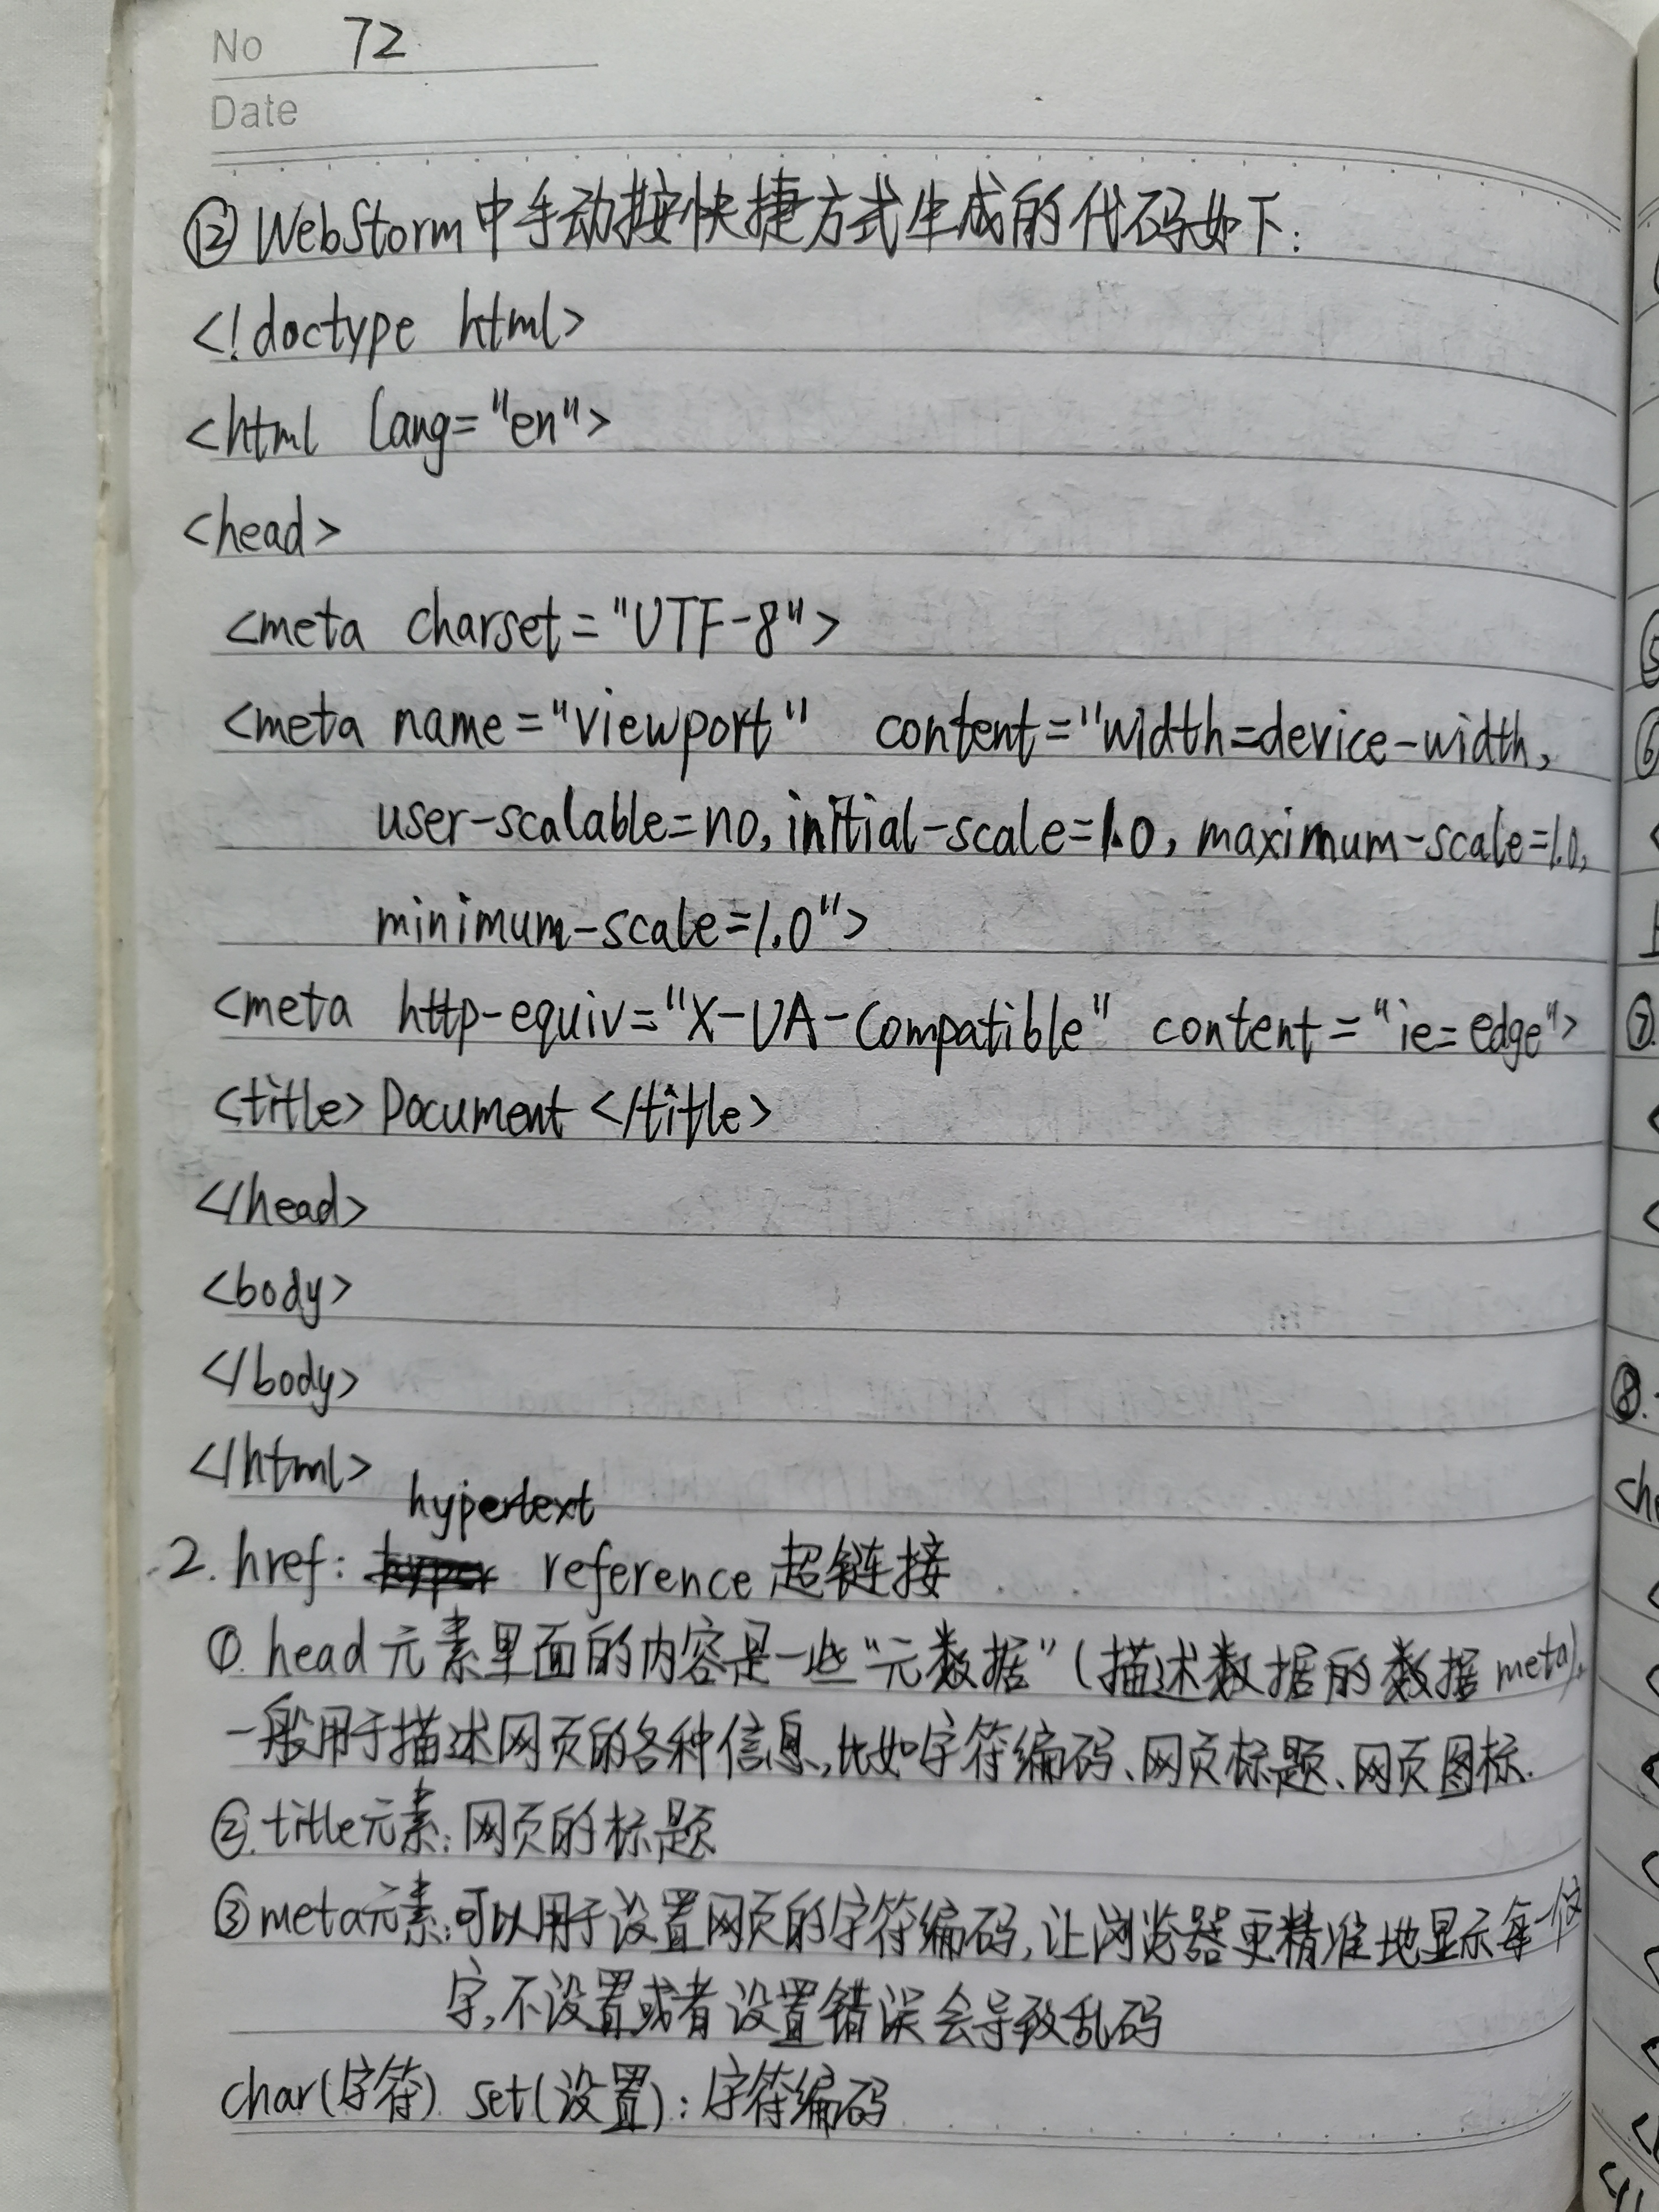 No 72
Date
⑫ WebStorm中手动按快捷方式生成的代码如下:
<!doctype html>
<html lang="en">
<head>
<meta charset="UTF-8">
<meta name="viewport" content="width=device-width,
user-scalable=no, initial-scale=1.0, maximum-scale=1.0,
minimum-scale=1.0">
<meta http-equiv="X-UA-Compatible" content="ie=edge">
<title> Document </title>
</head>
<body>
</body>
</html>
hypertext
2. href: reference 超链接
①. head 元素里面的内容是一些"元数据"(描述数据的数据 meta),
一般用于描述网页的各种信息,比如字符编码、网页标题、网页图标.
②. title元素: 网页的标题
③ meta元素:可以用于设置网页的字符编码,让浏览器更精准地显示每一位
字,不设置或者设置错误会导致乱码
char(字符) set(设置): 字符编码
⑤
⑥
⑦
⑧